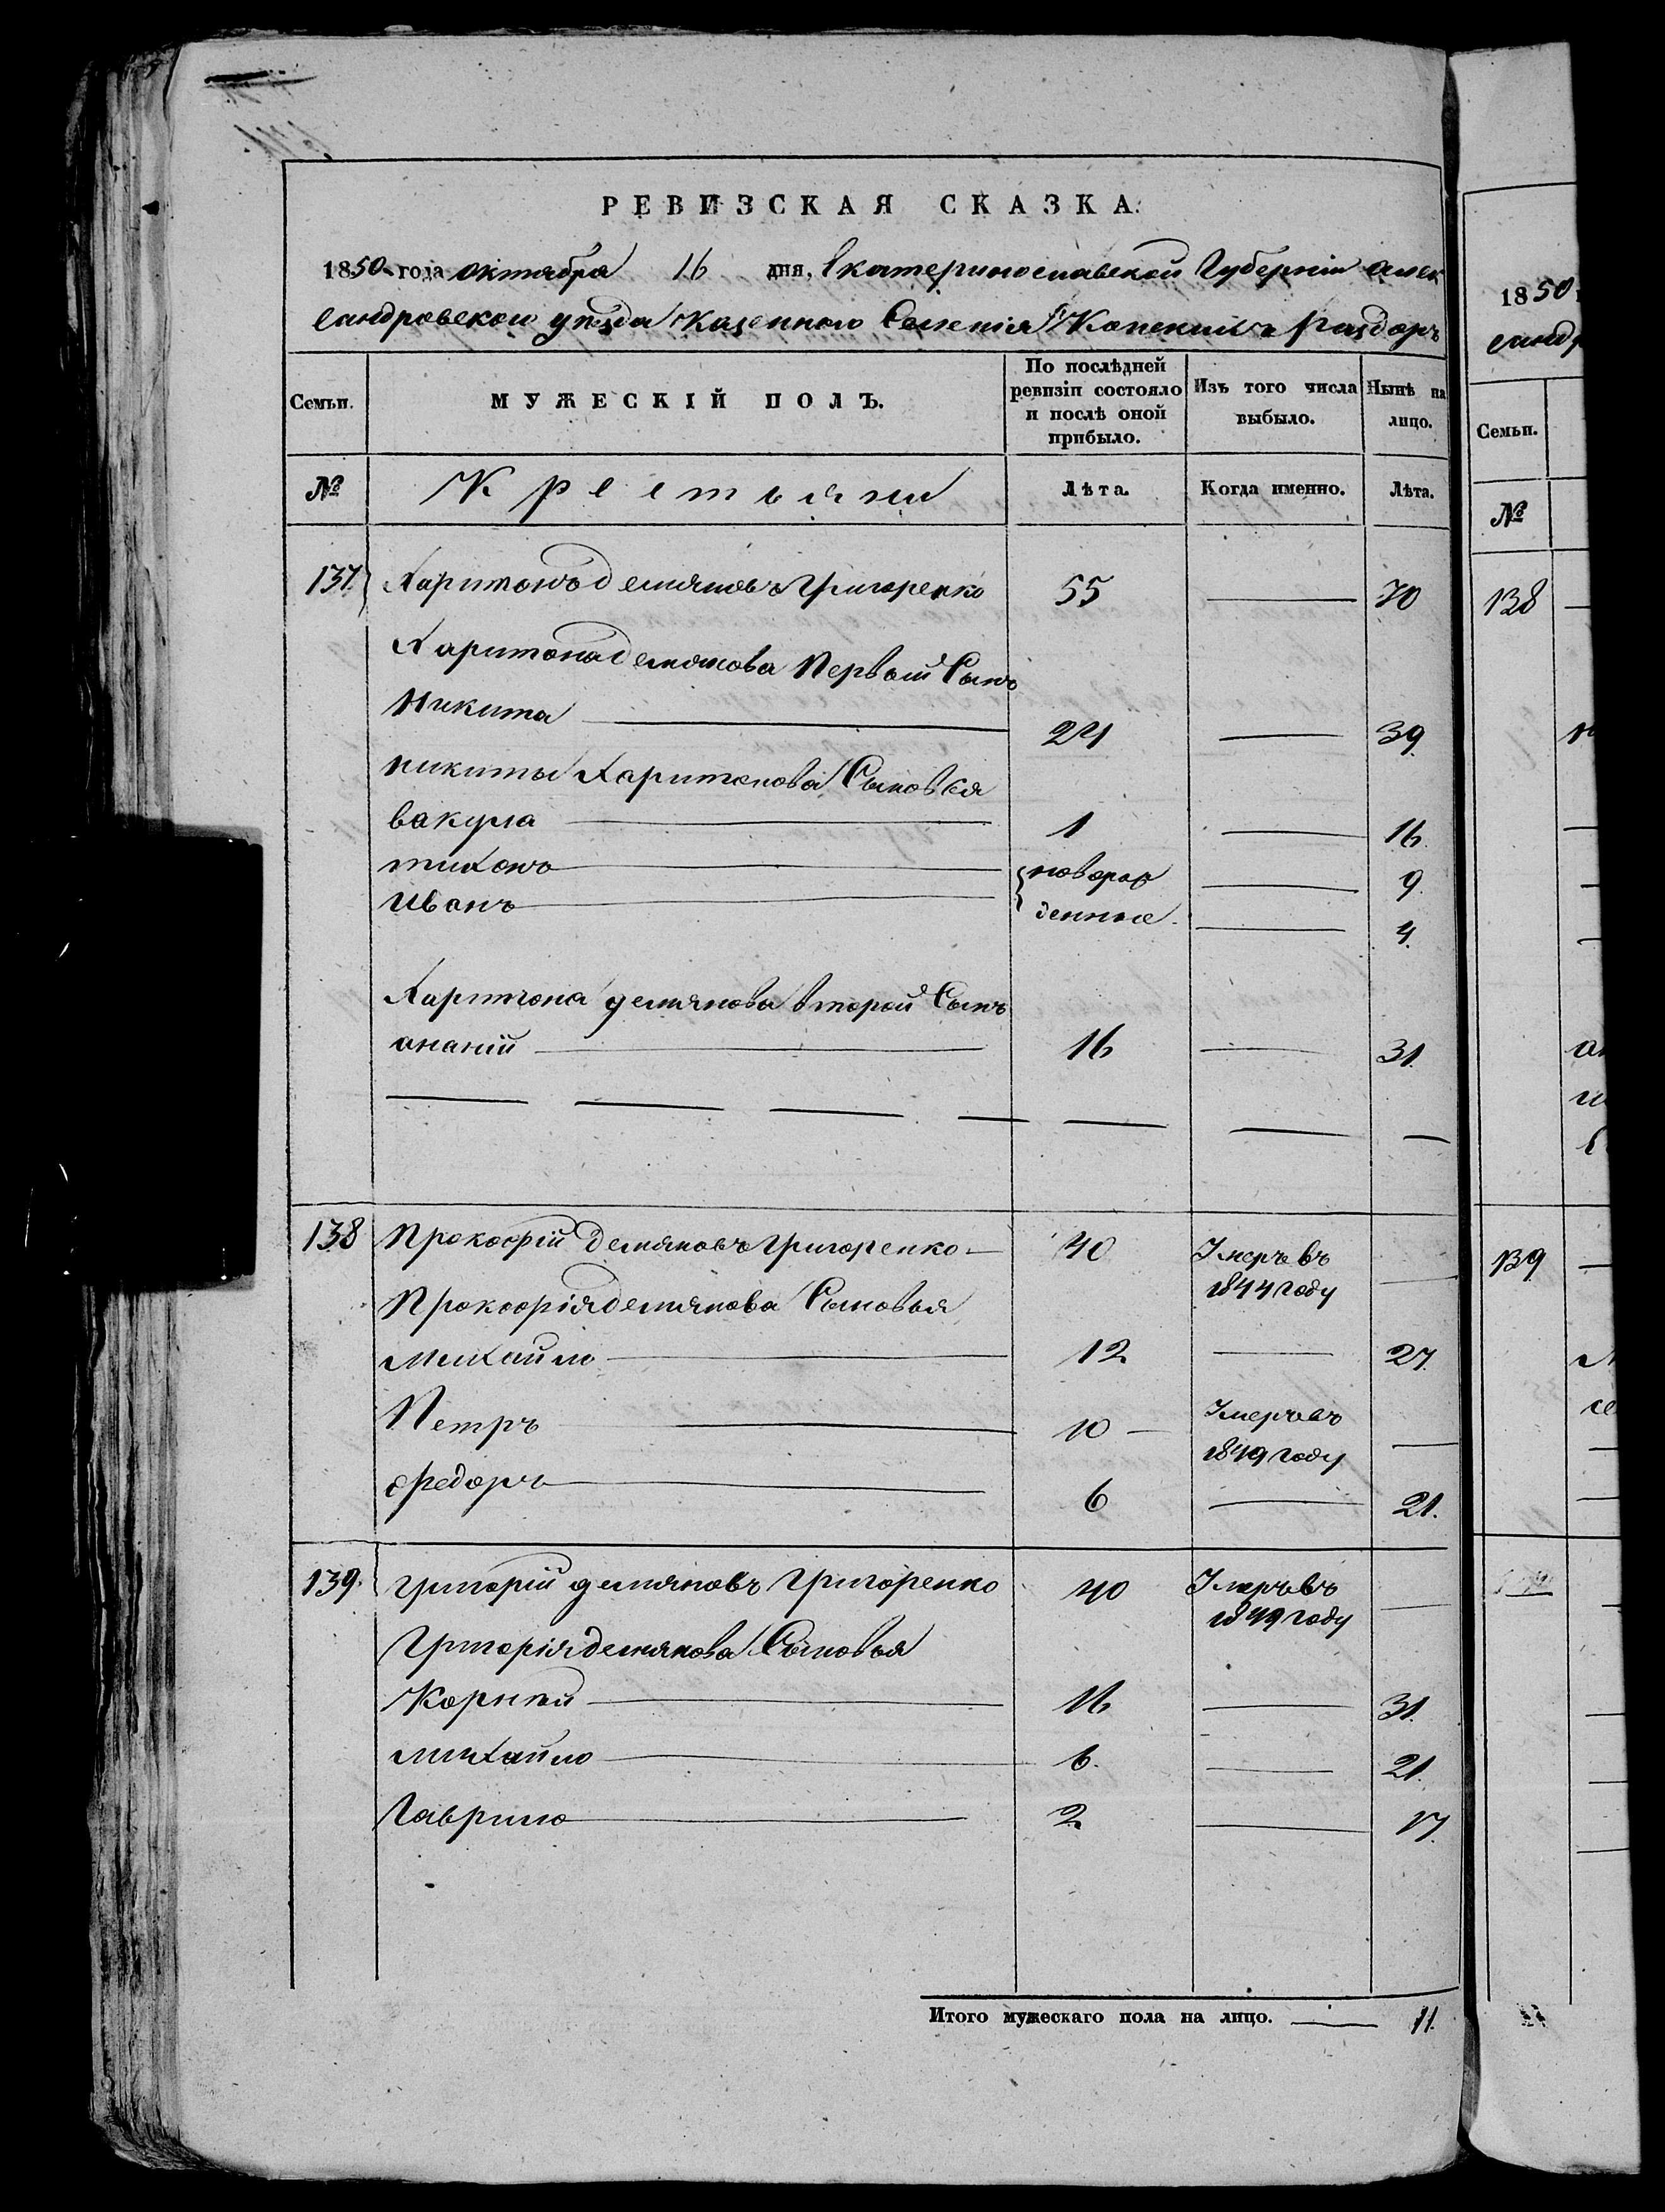 РЕВИЗСКАЯ СКАЗКА.
1850 года октября 16 дня, Екатеринославской Губерніи Алек
сандровского уѣзда Казенного Селенія Конскихъ Раздоръ
Семьи. МУЖЕСКІЙ ПОЛЪ. По послѣдней ревизіи состояло и послѣ оной прибыло. Изъ того числа выбыло. Нынѣ на лицо.
№ Крестьяни Лѣта. Когда именно. Лѣта.
137 Харитонъ демяновъ Григоренко 55 — 70
Харитона демянова Первый Сынъ
Никита — 24 — 39
никиты Харитонова Сыновья
вакула — 1 — 16
тихонъ — новорож — 9
Иванъ — денные — 4
Харитона демянова второй Сынъ
ананій — 16 — 31
138 Прокофій демяновъ Григоренко — 40 Умеръ въ
1844 году —
Прокофія демянова Сыновья
Михайло — 12 — 27
Петръ — 10 — Умеръ въ
1849 году —
федоръ — 6 — 21.
139. Григорій демяновъ Григоренко 40 Умеръ въ
1849 году —
Григорія демянова Сыновья
Корнѣй — 16 — 31
михайло — 6. — 21.
Гаврило — 2 — 17.
Итого мужескаго пола на лицо. — 11.
1850
сандр
Семьи.
№
138
139